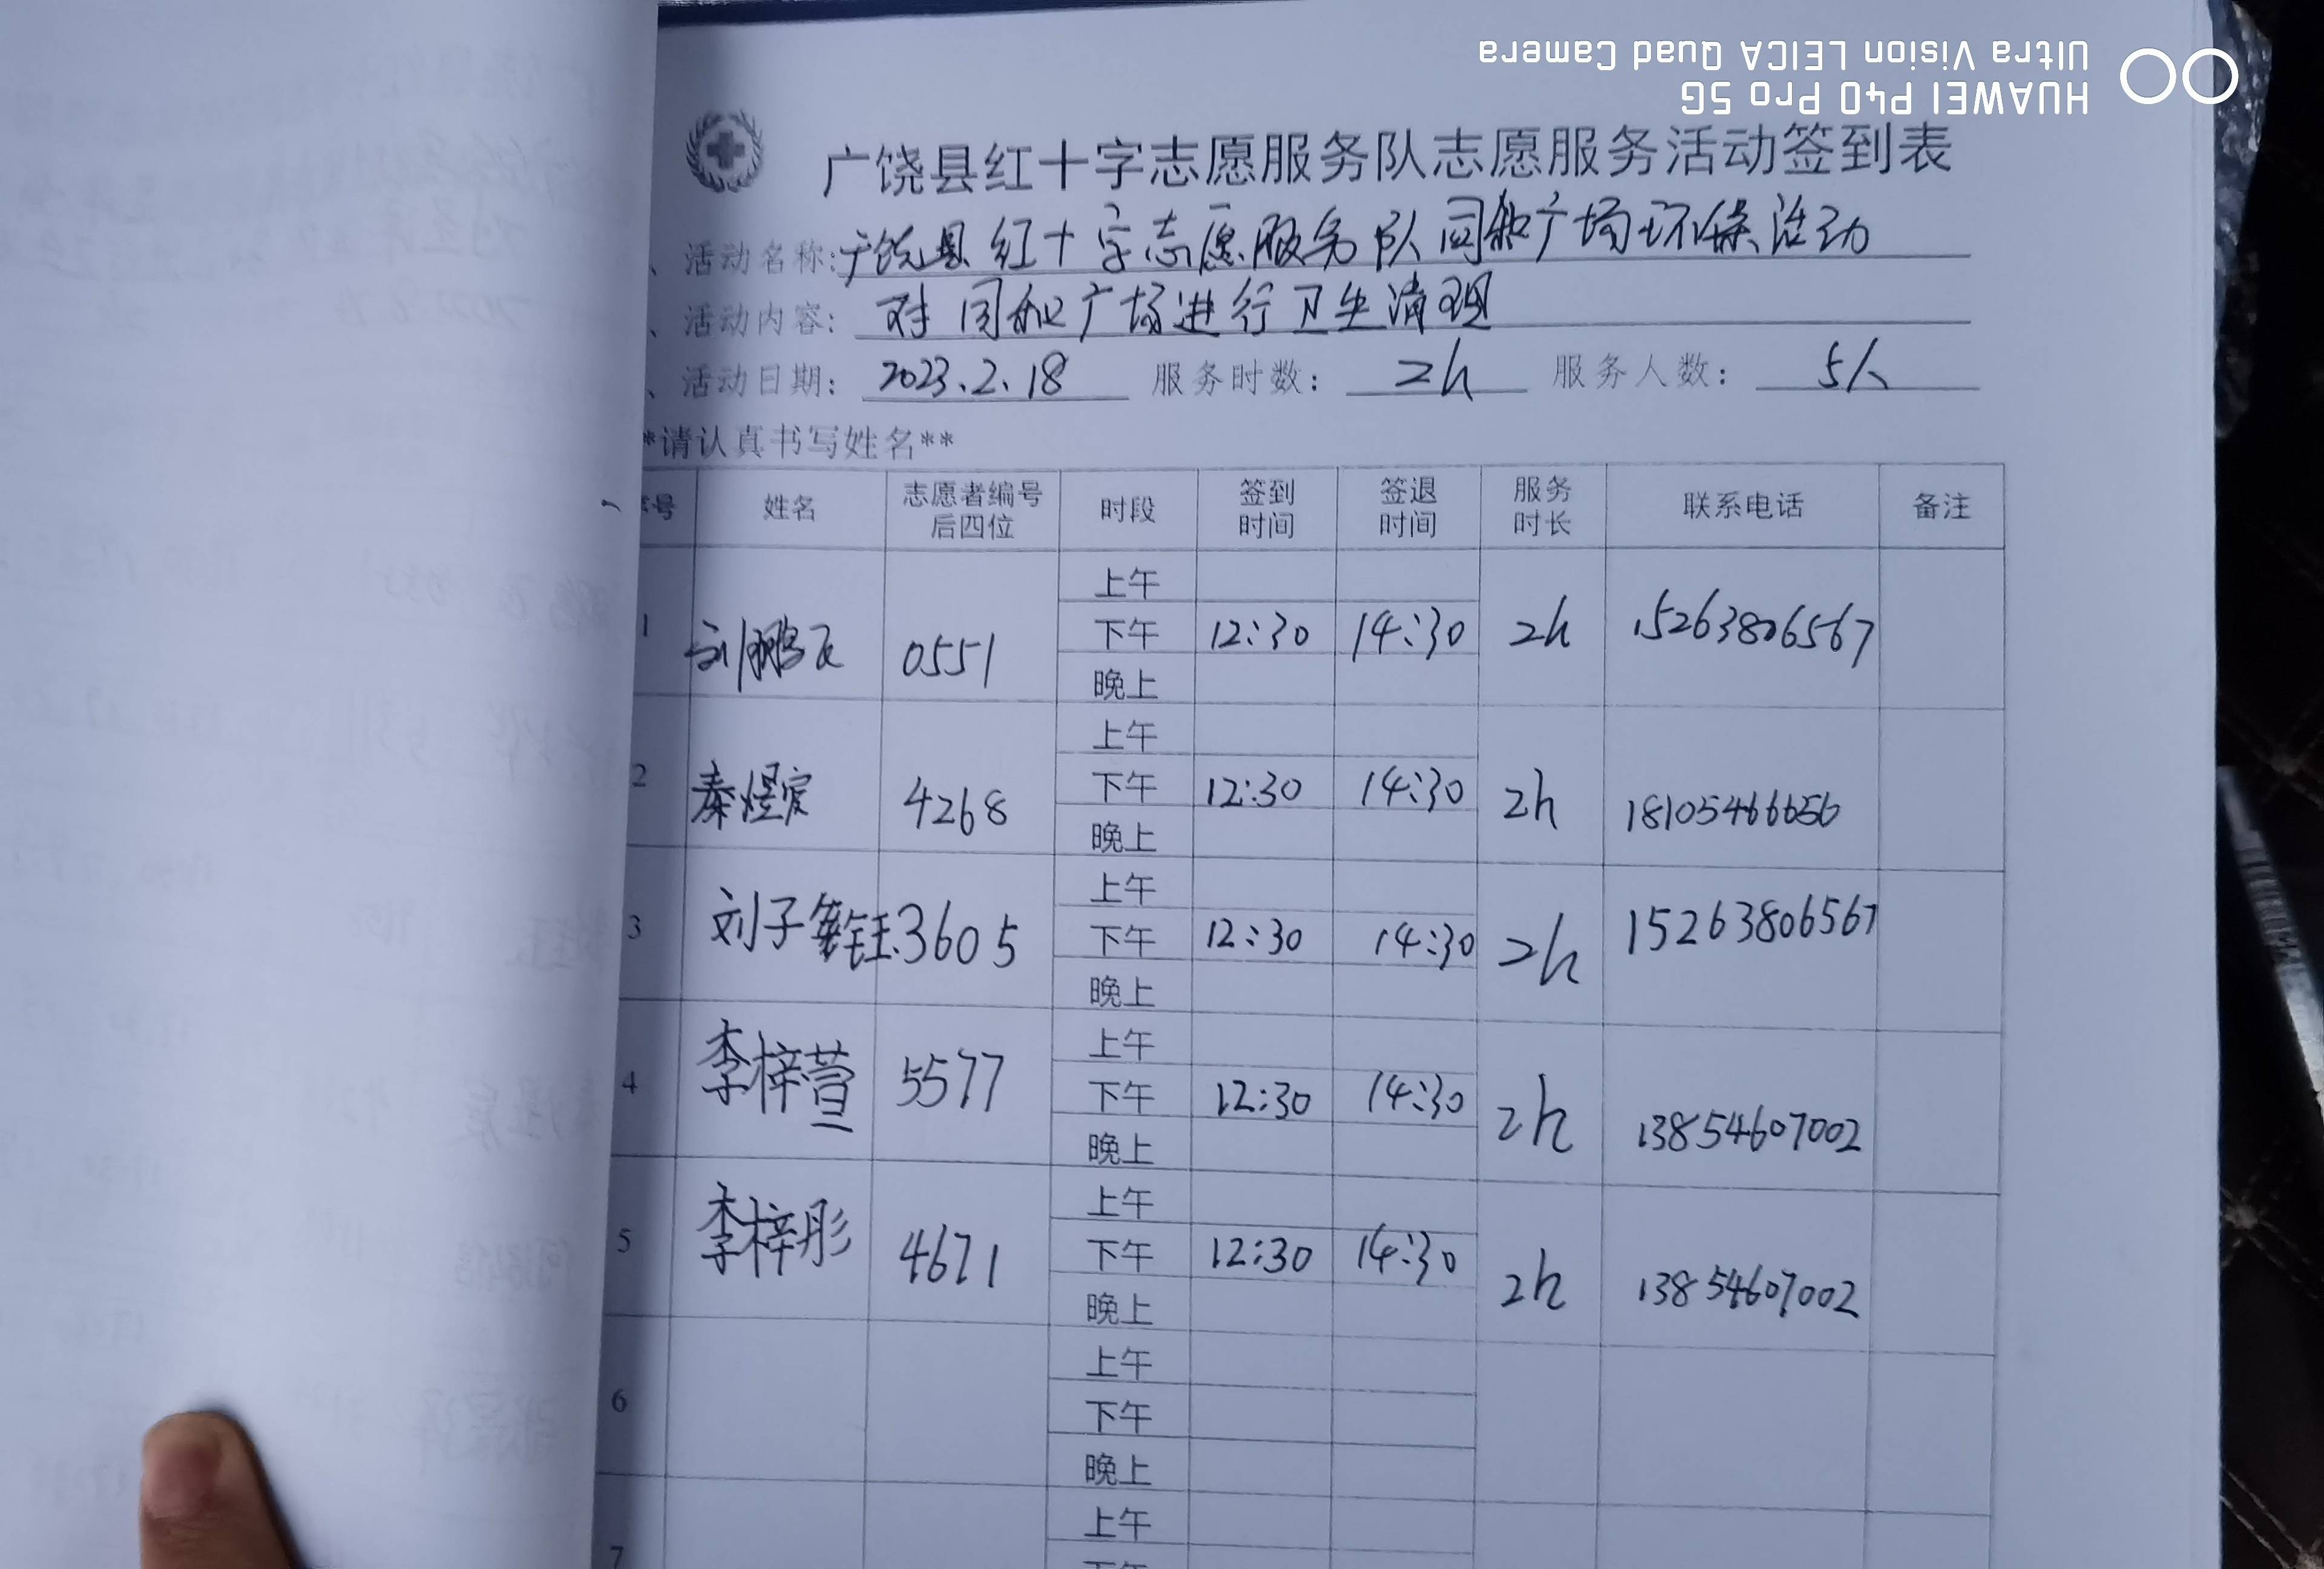 HUAWEI P40 Pro 5G
Ultra Vision LEICA Quad Camera
广饶县红十字志愿服务队志愿服务活动签到表
、活动名称:广饶县红十字志愿服务队同和广场环保活动
、活动内容: 对同和广场进行卫生清理
、活动日期: 2023.2.18 服务时数: 2h 服务人数: 5人
*请认真书写姓名**
序号 姓名 志愿者编号后四位 时段 签到时间 签退时间 服务时长 联系电话 备注
上午
1 刘鹏飞 0551 下午 12:30 14:30 2h 15263806567
晚上
上午
2 秦煜宸 4268 下午 12:30 14:30 2h 18105466656
晚上
上午
3 刘子钰 3605 下午 12:30 14:30 2h 15263806567
晚上
上午
4 李梓萱 5577 下午 12:30 14:30 2h 13854607002
晚上
上午
5 李梓彤 4671 下午 12:30 14:30 2h 13854607002
晚上
上午
6 下午
晚上
上午
7 下午